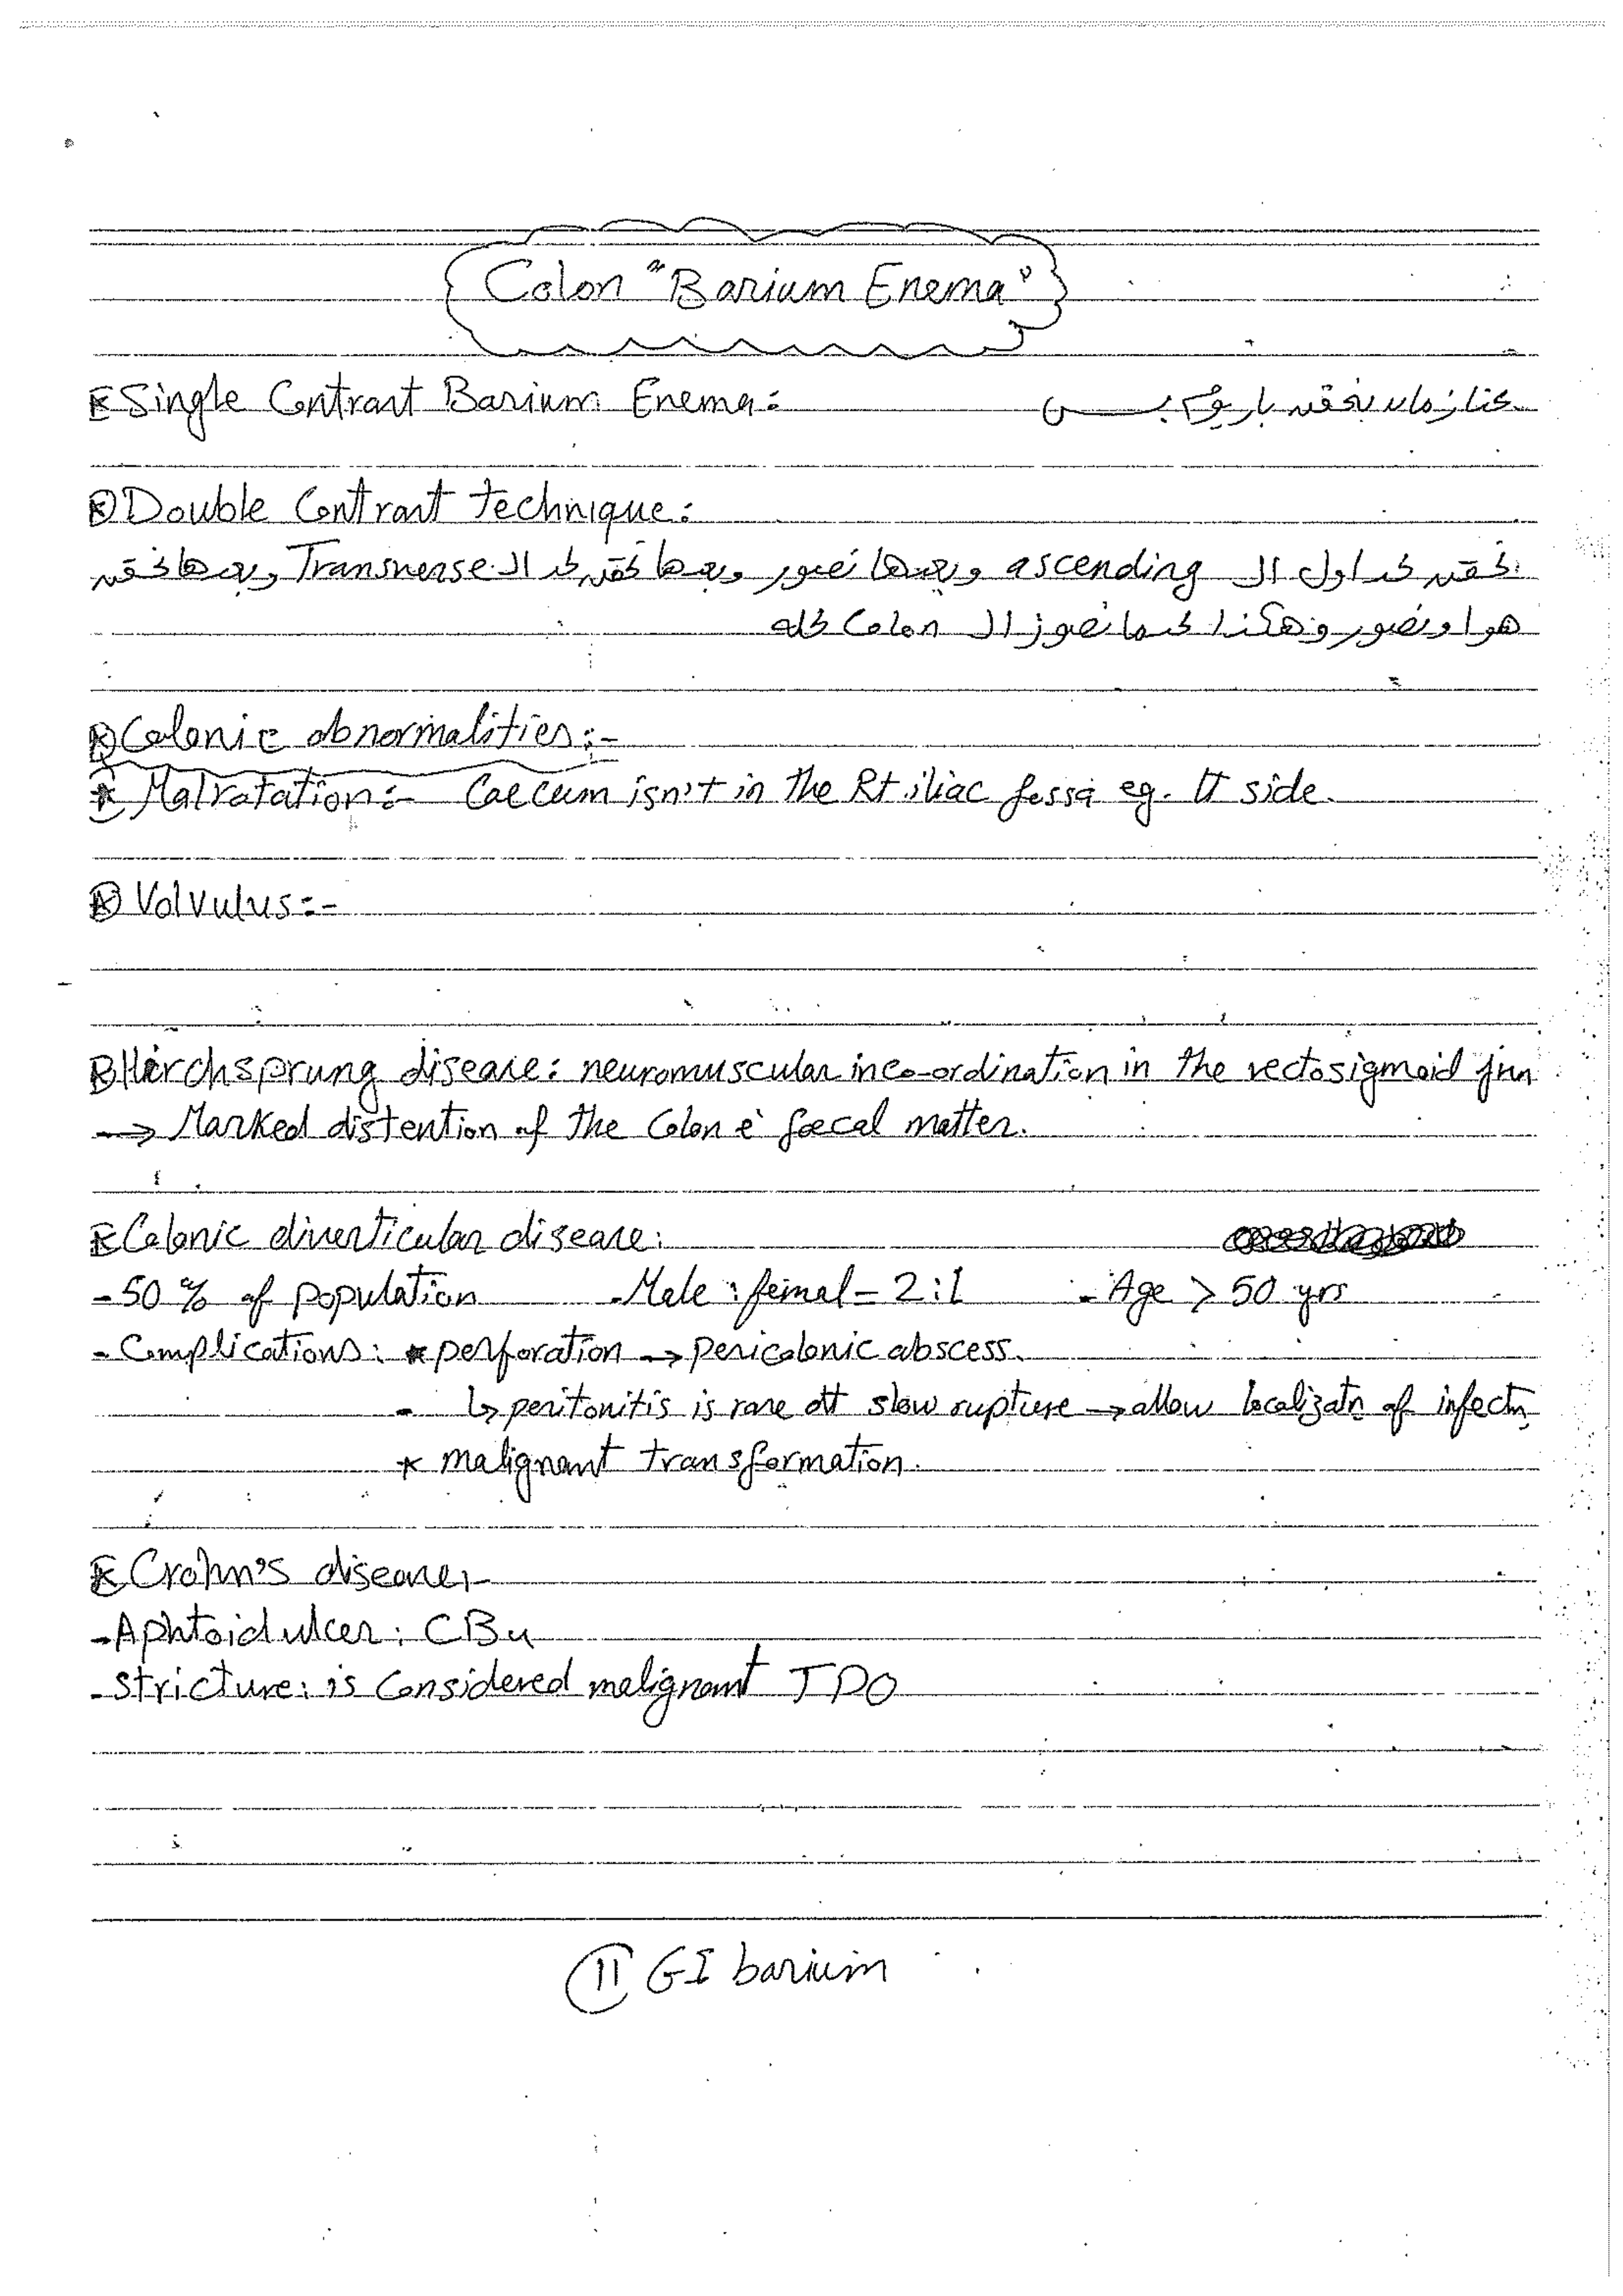 Colon "Barium Enema"
Single Contrast Barium Enema: كنا زمان بنحقن باريوم بس
Double Contrast technique:
نحقن لحد اول ال ascending وبعدها نصور وبعدها نحقن لحد ال Transverse وبعدها نحقن
هوا ونصور وهكذا لحد ما نصور ال Colon كله
Colonic abnormalities:-
* Malrotation:- Caecum isn't in the Rt iliac fossa eg. Lt side.
Volvulus:-
Hirchsprung disease: neuromuscular inco-ordination in the rectosigmoid jnn
→ Marked distention of the Colon è faecal matter.
Colonic diverticular disease:
- 50% of population - Male : femal = 2:1 - Age > 50 yrs
- Complications: * perforation → pericolonic abscess.
- ↳ peritonitis is rare dt slow rupture → allow localizatn of infectn
* malignant transformation.
Crohn's disease:-
- Aphtoid ulcer: CBu
- Stricture: is Considered malignant TPO
11 GI barium